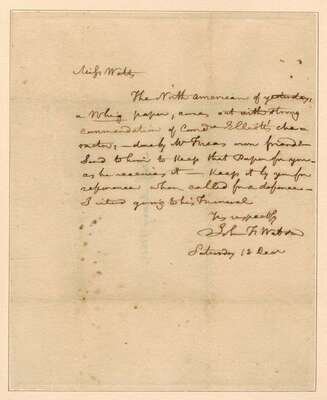 Miss Watts
The North American of yesterday,
a Whig paper, comes out with strong
commendation of Com^re Elliott's cha-
racter, – done by Mr Freas own friend –
I said to him to Keep that Paper for you –
as he receives it – Keep it by you for
reference when called for a defence –
I intend going to his Funeral
Yrs respectfy
John F. Watson
Saturday 13 Decr